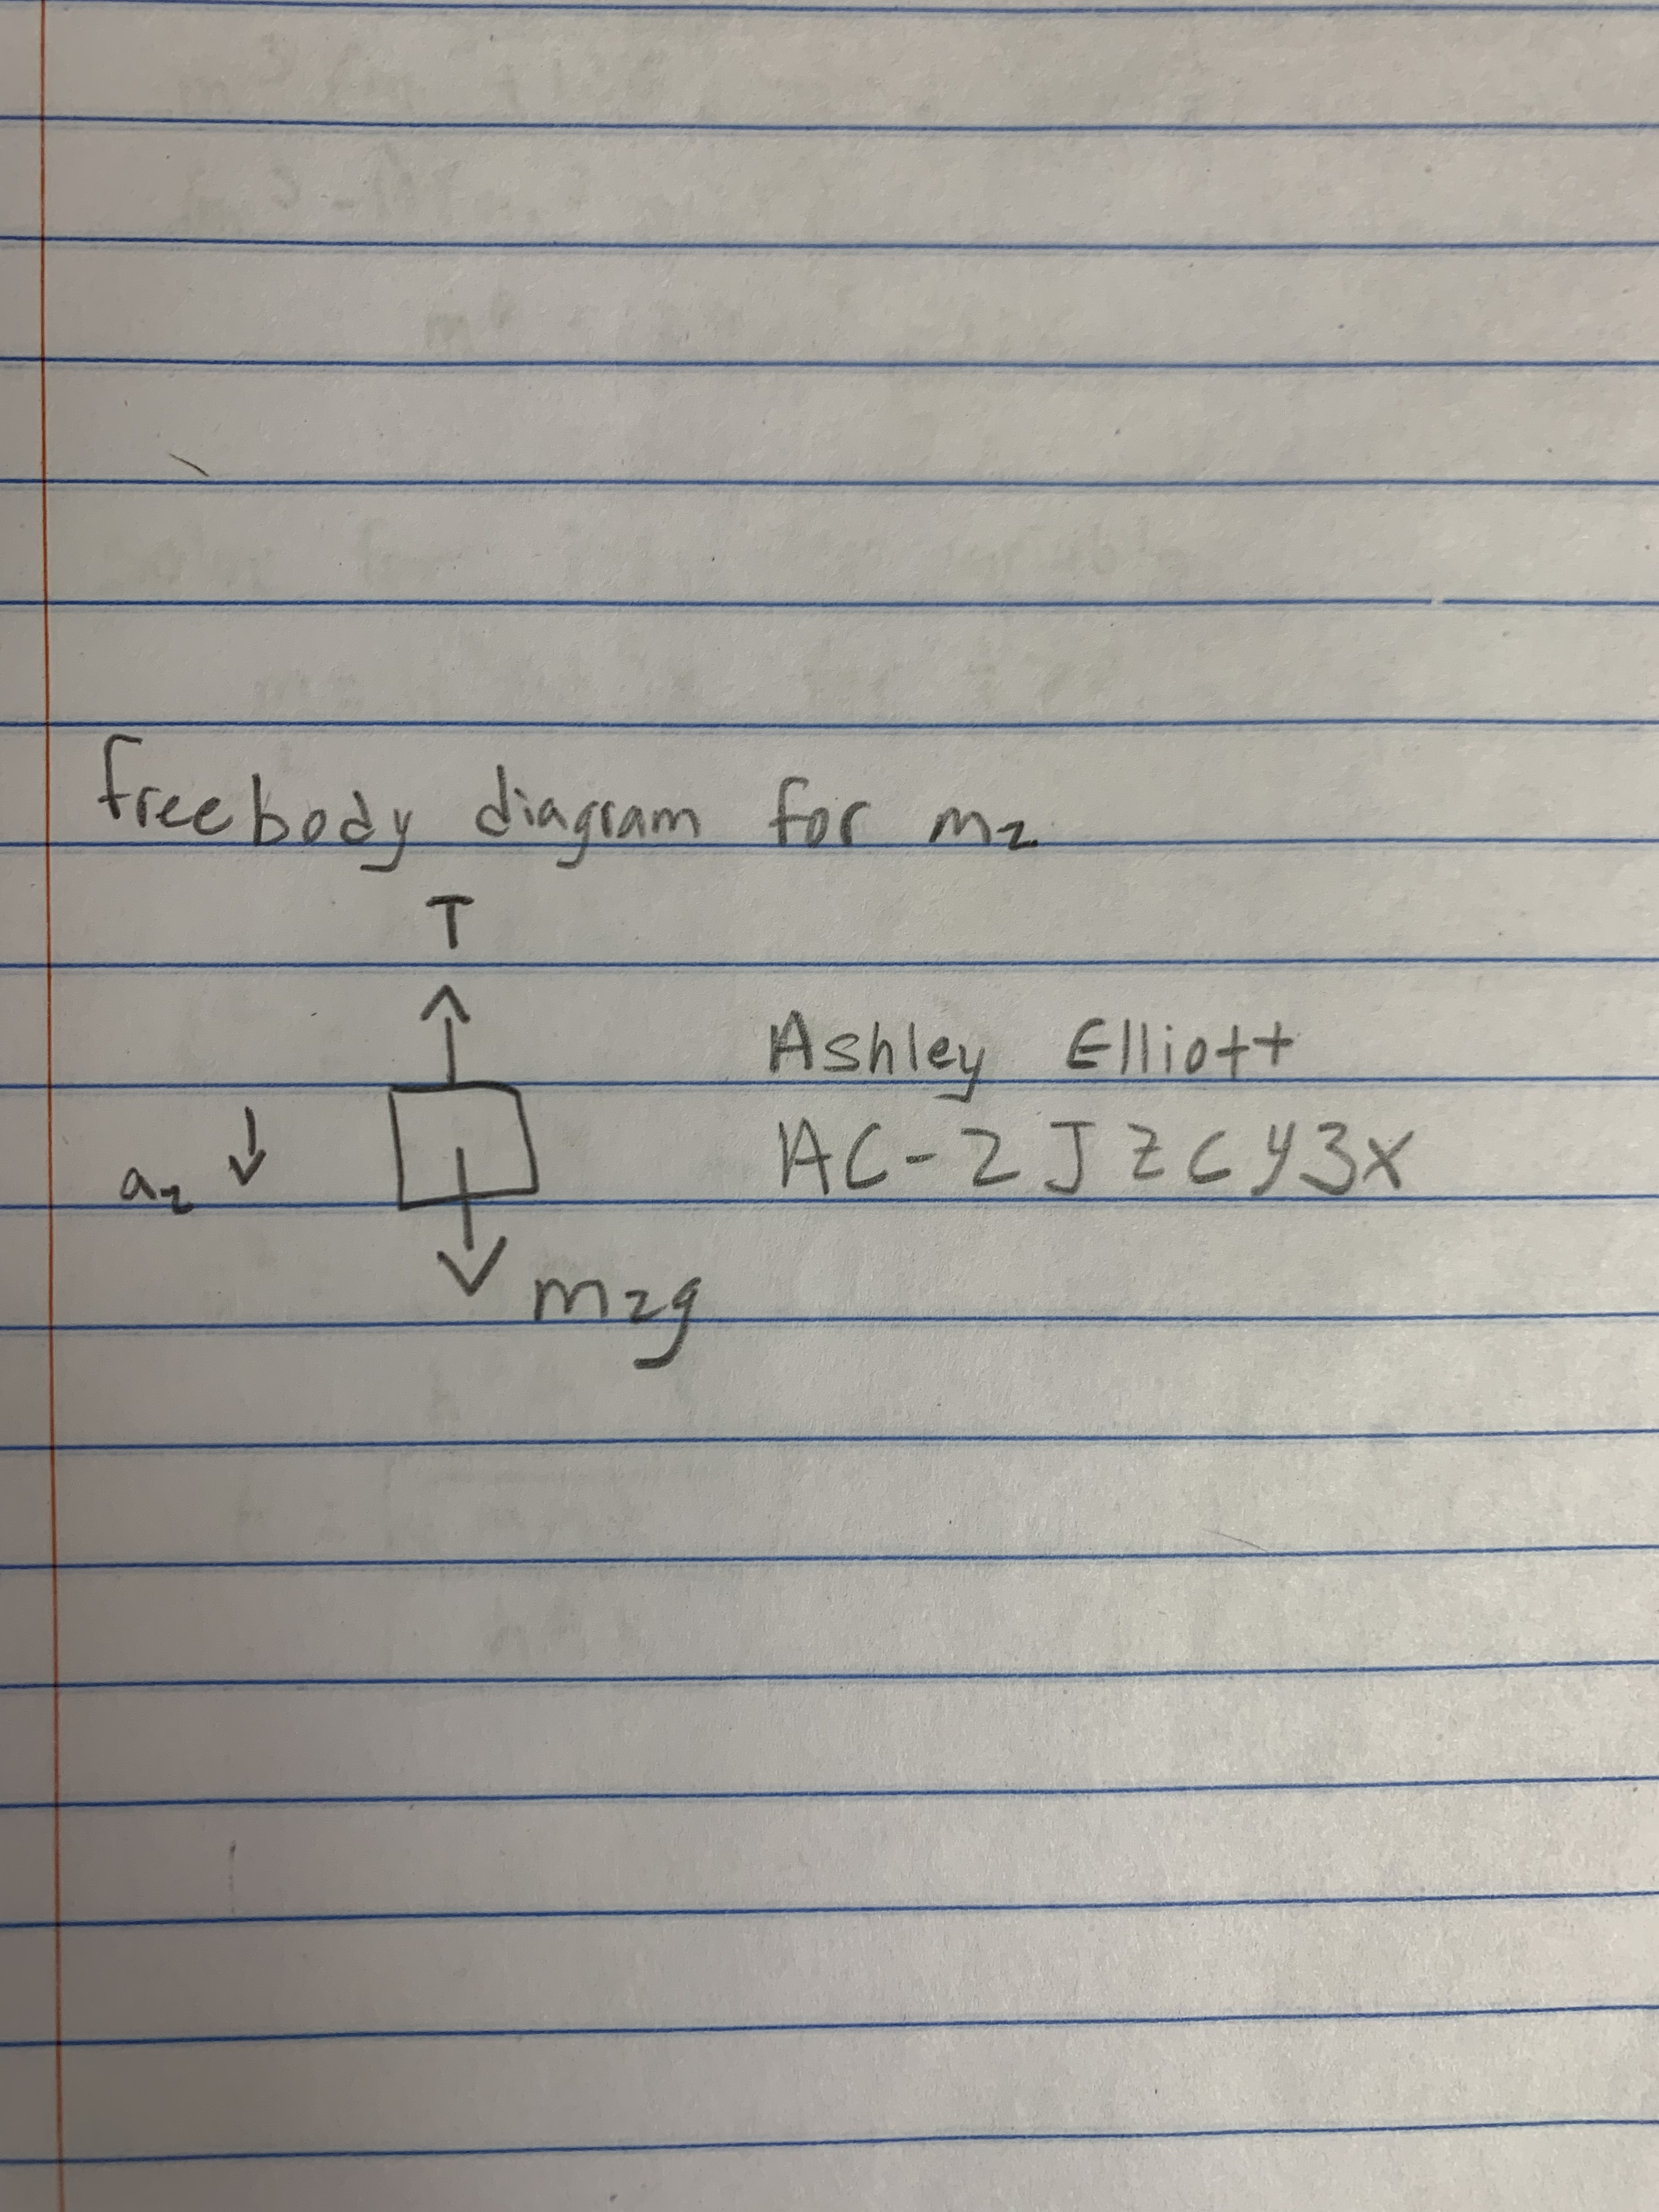 free body diagram for m2
T
Ashley Elliott
a2
AC-2JZCY3X
m2g